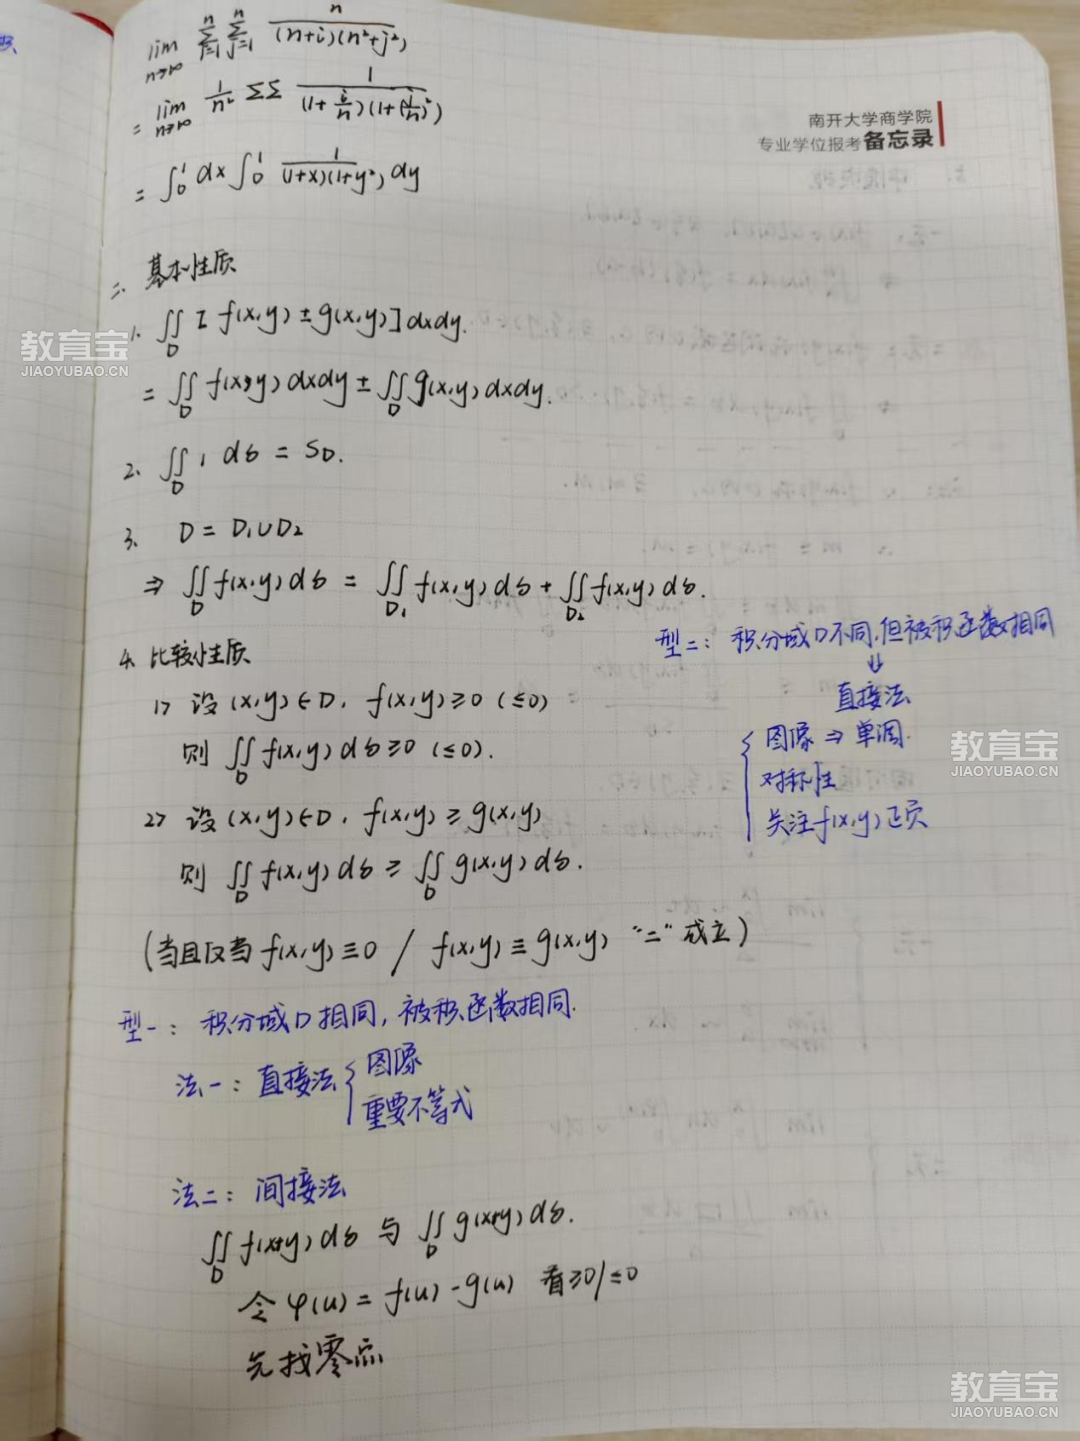 lim n→∞ ∑_{i=1}^{n} ∑_{j=1}^{n} n/((n+i)(n²+j²))
= lim n→∞ 1/n² ∑∑ 1/((1+i/n)(1+(j/n)²))
= ∫₀¹ dx ∫₀¹ 1/((1+x)(1+y²)) dy
南开大学商学院
专业学位报考备忘录
二. 基本性质
1. ∬_D [f(x,y) ± g(x,y)] dxdy.
= ∬_D f(x,y) dxdy ± ∬_D g(x,y) dxdy.
2. ∬_D 1 dσ = S_D.
3. D = D₁∪D₂
⇒ ∬_D f(x,y) dσ = ∬_{D₁} f(x,y) dσ + ∬_{D₂} f(x,y) dσ.
4. 比较性质
1) 设 (x,y)∈D, f(x,y)≥0 (≤0)
则 ∬_D f(x,y) dσ≥0 (≤0).
2) 设 (x,y)∈D, f(x,y) ≥ g(x,y)
则 ∬_D f(x,y) dσ ≥ ∬_D g(x,y) dσ.
(当且仅当 f(x,y)≡0 / f(x,y)≡g(x,y) "=" 成立)
型二: 积分域D不同,但被积函数相同
⇓
直接法
{ 图像 ⇒ 单调.
对称性
关注f(x,y)正负
型一: 积分域D相同, 被积函数相同.
法一: 直接法 { 图像
重要不等式
法二: 间接法
∬_D f(x+y) dσ 与 ∬_D g(x+y) dσ.
令 φ(u) = f(u) - g(u) 看≥0/≤0
先找零点
教育宝
JIAOYUBAO.CN
教育宝
JIAOYUBAO.CN
教育宝
JIAOYUBAO.CN